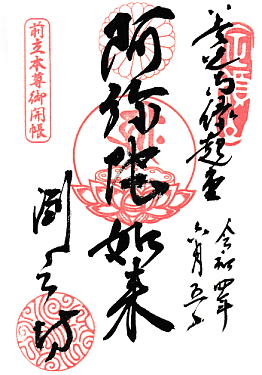 善光寺縁起堂
令和四年
六月五日
阿弥陀如来
淵之坊
前立本尊御開帳